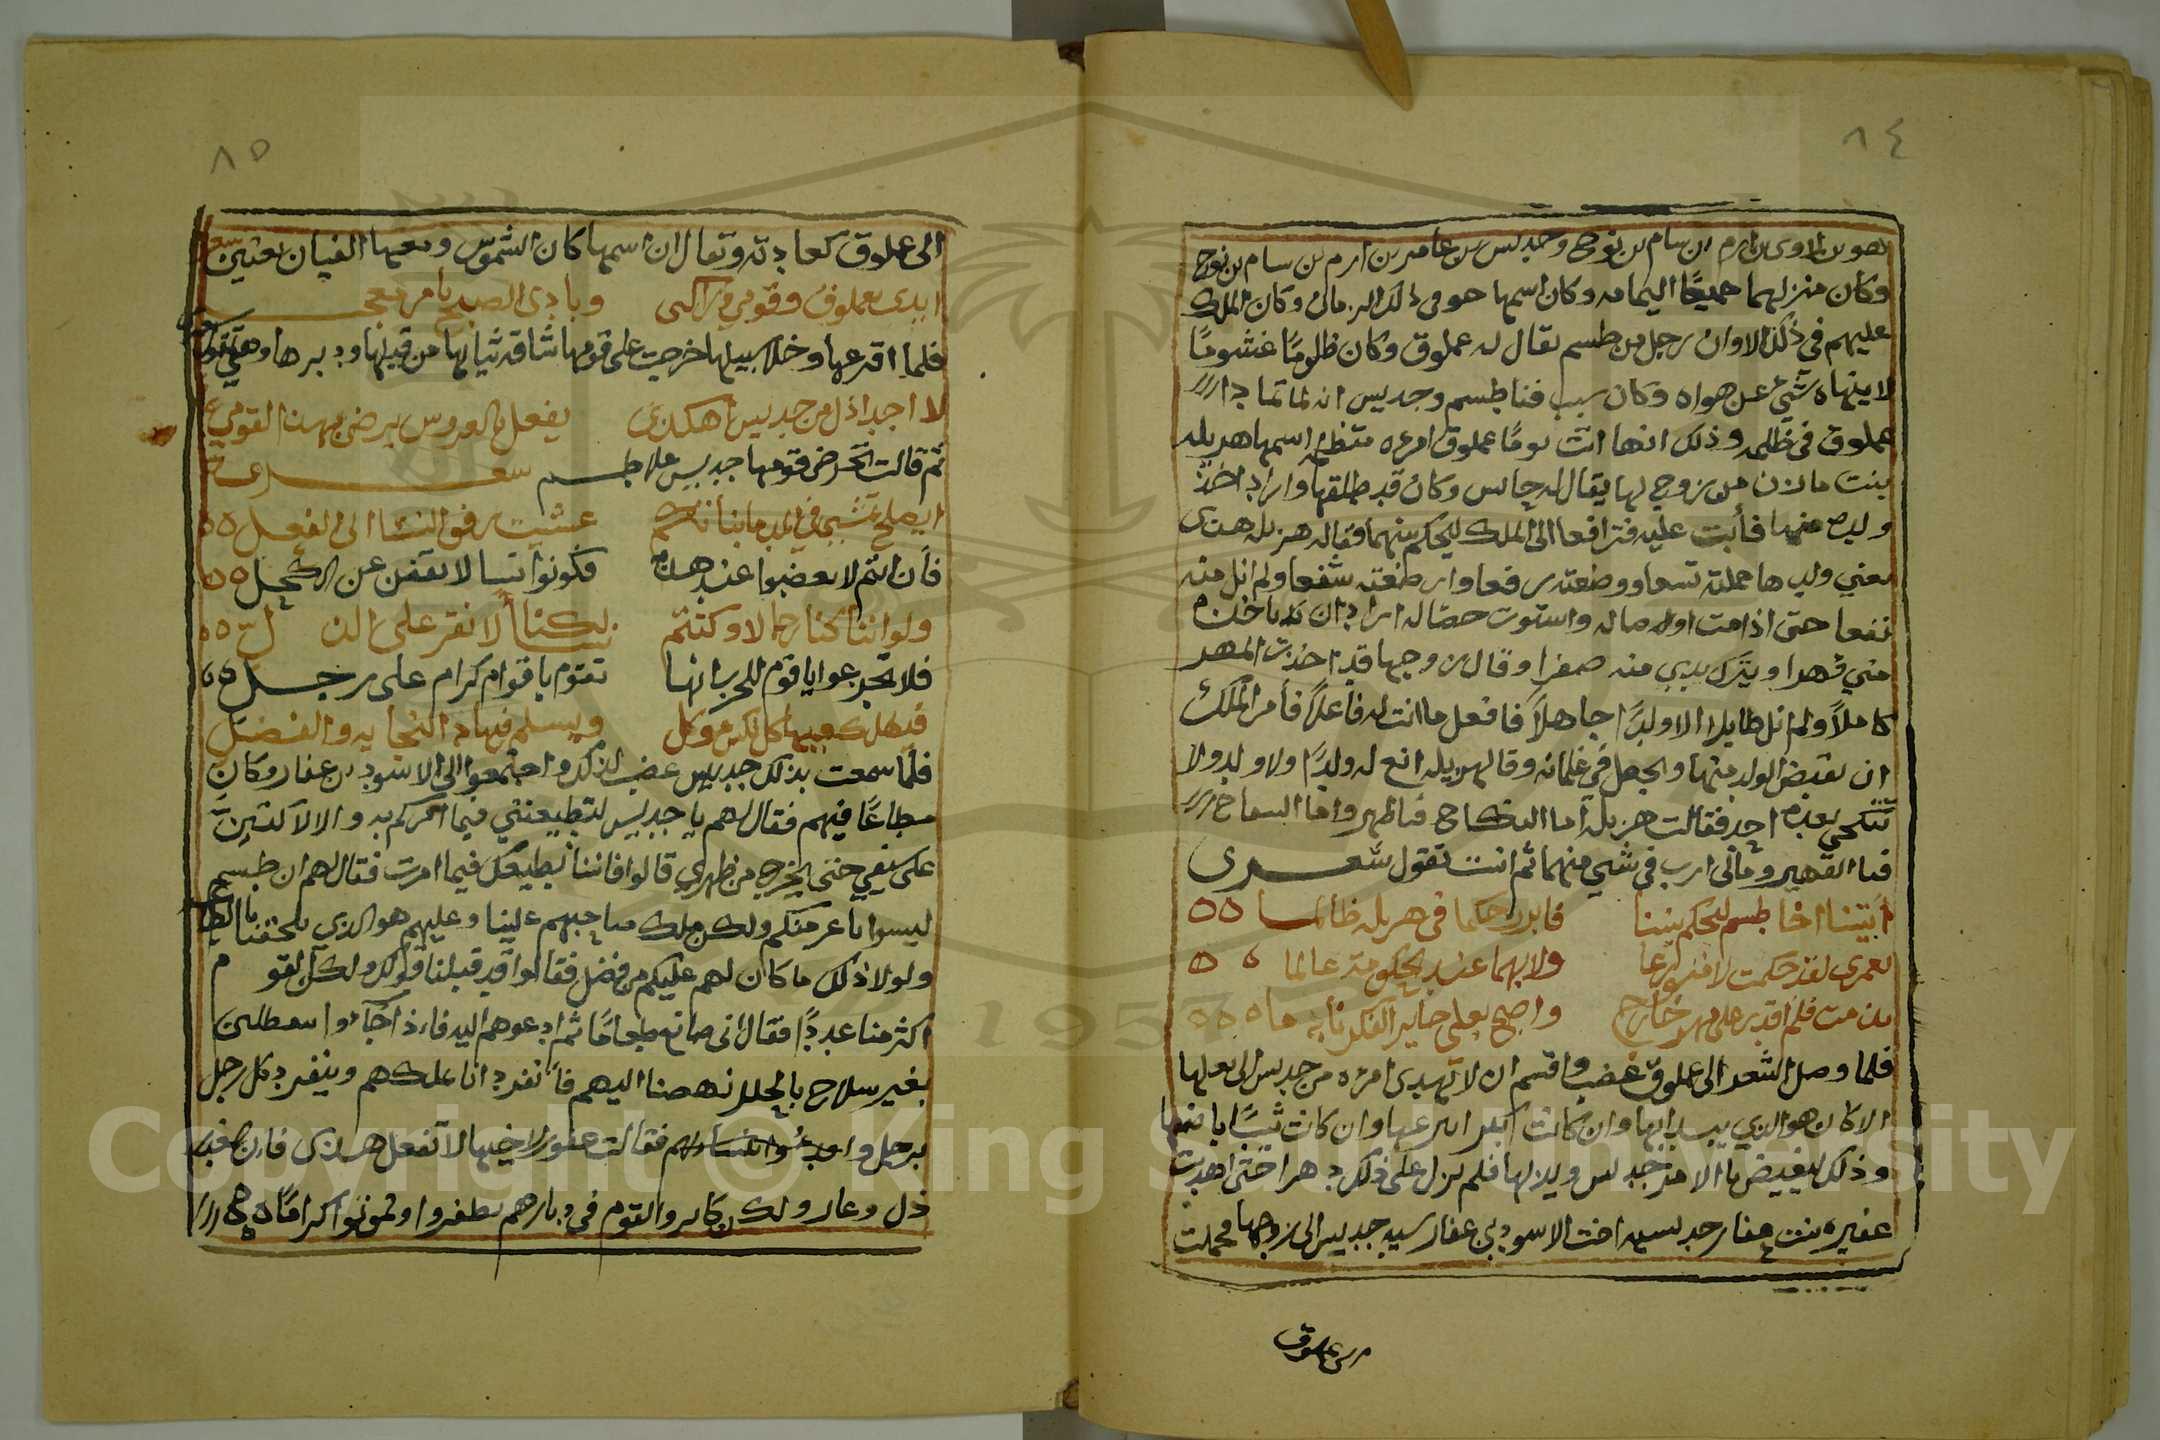 ٨٤
بن لاوى بن ارم بن سام بن نوح وجديس بن عامر بن ارم بن سام بن نوح
وكان منزلهما جميعًا اليمامه وكان اسمها جو في ذلك الزمان وكان الملك
عليهم في ذلك الاوان رجل من طسم يقال له عملوق وكان ظلومًا غشومًا
لا ينهاه شيء عن هواه وكان سبب فنا طسم وجديس انه لما تمادا
عملوق في ظلمه وذلك انها اتت يومًا عملوق امره متظلمه اسمها هزيله
بنت مازن من زوج لها يقال له جالس وكان قد طلقها واراد اخذ
ولده منها فأبت عليه فترافعا الى الملك ليحكم بينهما فقاله هزيله هذى
يعني ولدها حملته تسعا ووضعته رفعا وارضعته شفعا ولم انل منه
نفعا حتى اذا تمت اوصاله واستوت خصاله اراد ان ياخذه
مني قهرا ويترك يدي منه صفرا وقال زوجها قد اخذت المهر
كاملاً ولم انل طايلا الا ولدًا جاهلاً فافعل ما انت له فاعلاً فأمر الملك
ان يقبض الولد منها والجعل في غلمانه وقال لهزيله ابغ له ولدًا ولا ولد ولا
تنكحي بعده احد فقالت هزيله أما النكاح فبالمهر واما السفاح
فباالقهر ومالى ارب في شيء منهما ثم انشت تقول شعرى
اتيتنا اخا طسم ليحكم بيننا فابرز حكما في هزيله ظالما
لعمرى لقد حكمت لا متورعا ولا بهما عند الحكومة عالما
ندمت فلم اقدر على مهو خارج واصبح بعلى حاير الفكر نادما
فلما وصل الشعر الى عملوق غضب واقسم ان لا تهدى امره من جديس الى بعلها
الا كان هو الذي يبدا بها وان كانت بكرا افترعها وان كانت ثيبًا باضعها
وذلك ليغيض باالامر جديس ويذلها فلم يزل على ذلك دهرا حتى اهديت
عفيره بنت عفار جديسيه اخت الاسود بن عفار سيد جديس الى زوجها فحملت
عملوق
٨٥
الى عملوق كعادته وتقال ان اسمها كان الشموس ومعها القيان يغنين شعر
ابدى بعملوق وقومي فاركبى وبادرى الصبح بامر معجب
فلما اقترعها وخلا سبيلها خرجت على قومها شاقه ثيابها من قبلها ودبرها وهي تقول
لا احد اذل من جديس اهكذى يفعل بالعروس يرضى بهذا القومي
ثم قالت تحرض قومها جديس على طسم شعر
ايصلح تمشي في الدما بناتكم عشيت زفوا النسا الى الفعل
فأن انتم لا تغضبوا عند هذه فكونوا نسا لا تغفن عن الكحل
ولو اننا كنا رجالا وكنتم نساء لكنا لا نقر على الذل
فلا تجزعوا يا قوم للحرب انها تقوم باقوام كرام على رجل
فيهلك فيها كل نكس موكل ويسلم فيها ذا النجابه والفضل
فلما سمعت بذلك جديس غضب لذلك واجتمعوا الى الاسود بن عفار وكان
مطاعًا فيهم فقال لهم يا جديس لتطيعنني فيما امركم به والا لاتكئن
على سيفي حتى يخرج من ظهري قالوا فاننا نطيعك فيما امرت فقال لهم ان طسم
ليسوا باعز منكم ولكن ملك صاحبهم علينا وعليهم هو الذي يلحقنا بالطاعه
ولولا ذلك ما كان لهم عليكم من فضل فقالوا قد قبلنا قولك ولكن القوم
اكثر منا عددًا فقال انى صانع طعامًا ثم ادعوهم اليه فاذا جاؤا
بغير سلاح بالحلل نهضنا اليهم فأنفرد انا بملكهم وينفرد كل رجل
برجل فقالت عفيره لاخيها لا تفعل هذى فان الغدر
ذل وعار ولكن كابروا القوم في ديارهم تظفروا او تموتوا كرامًا